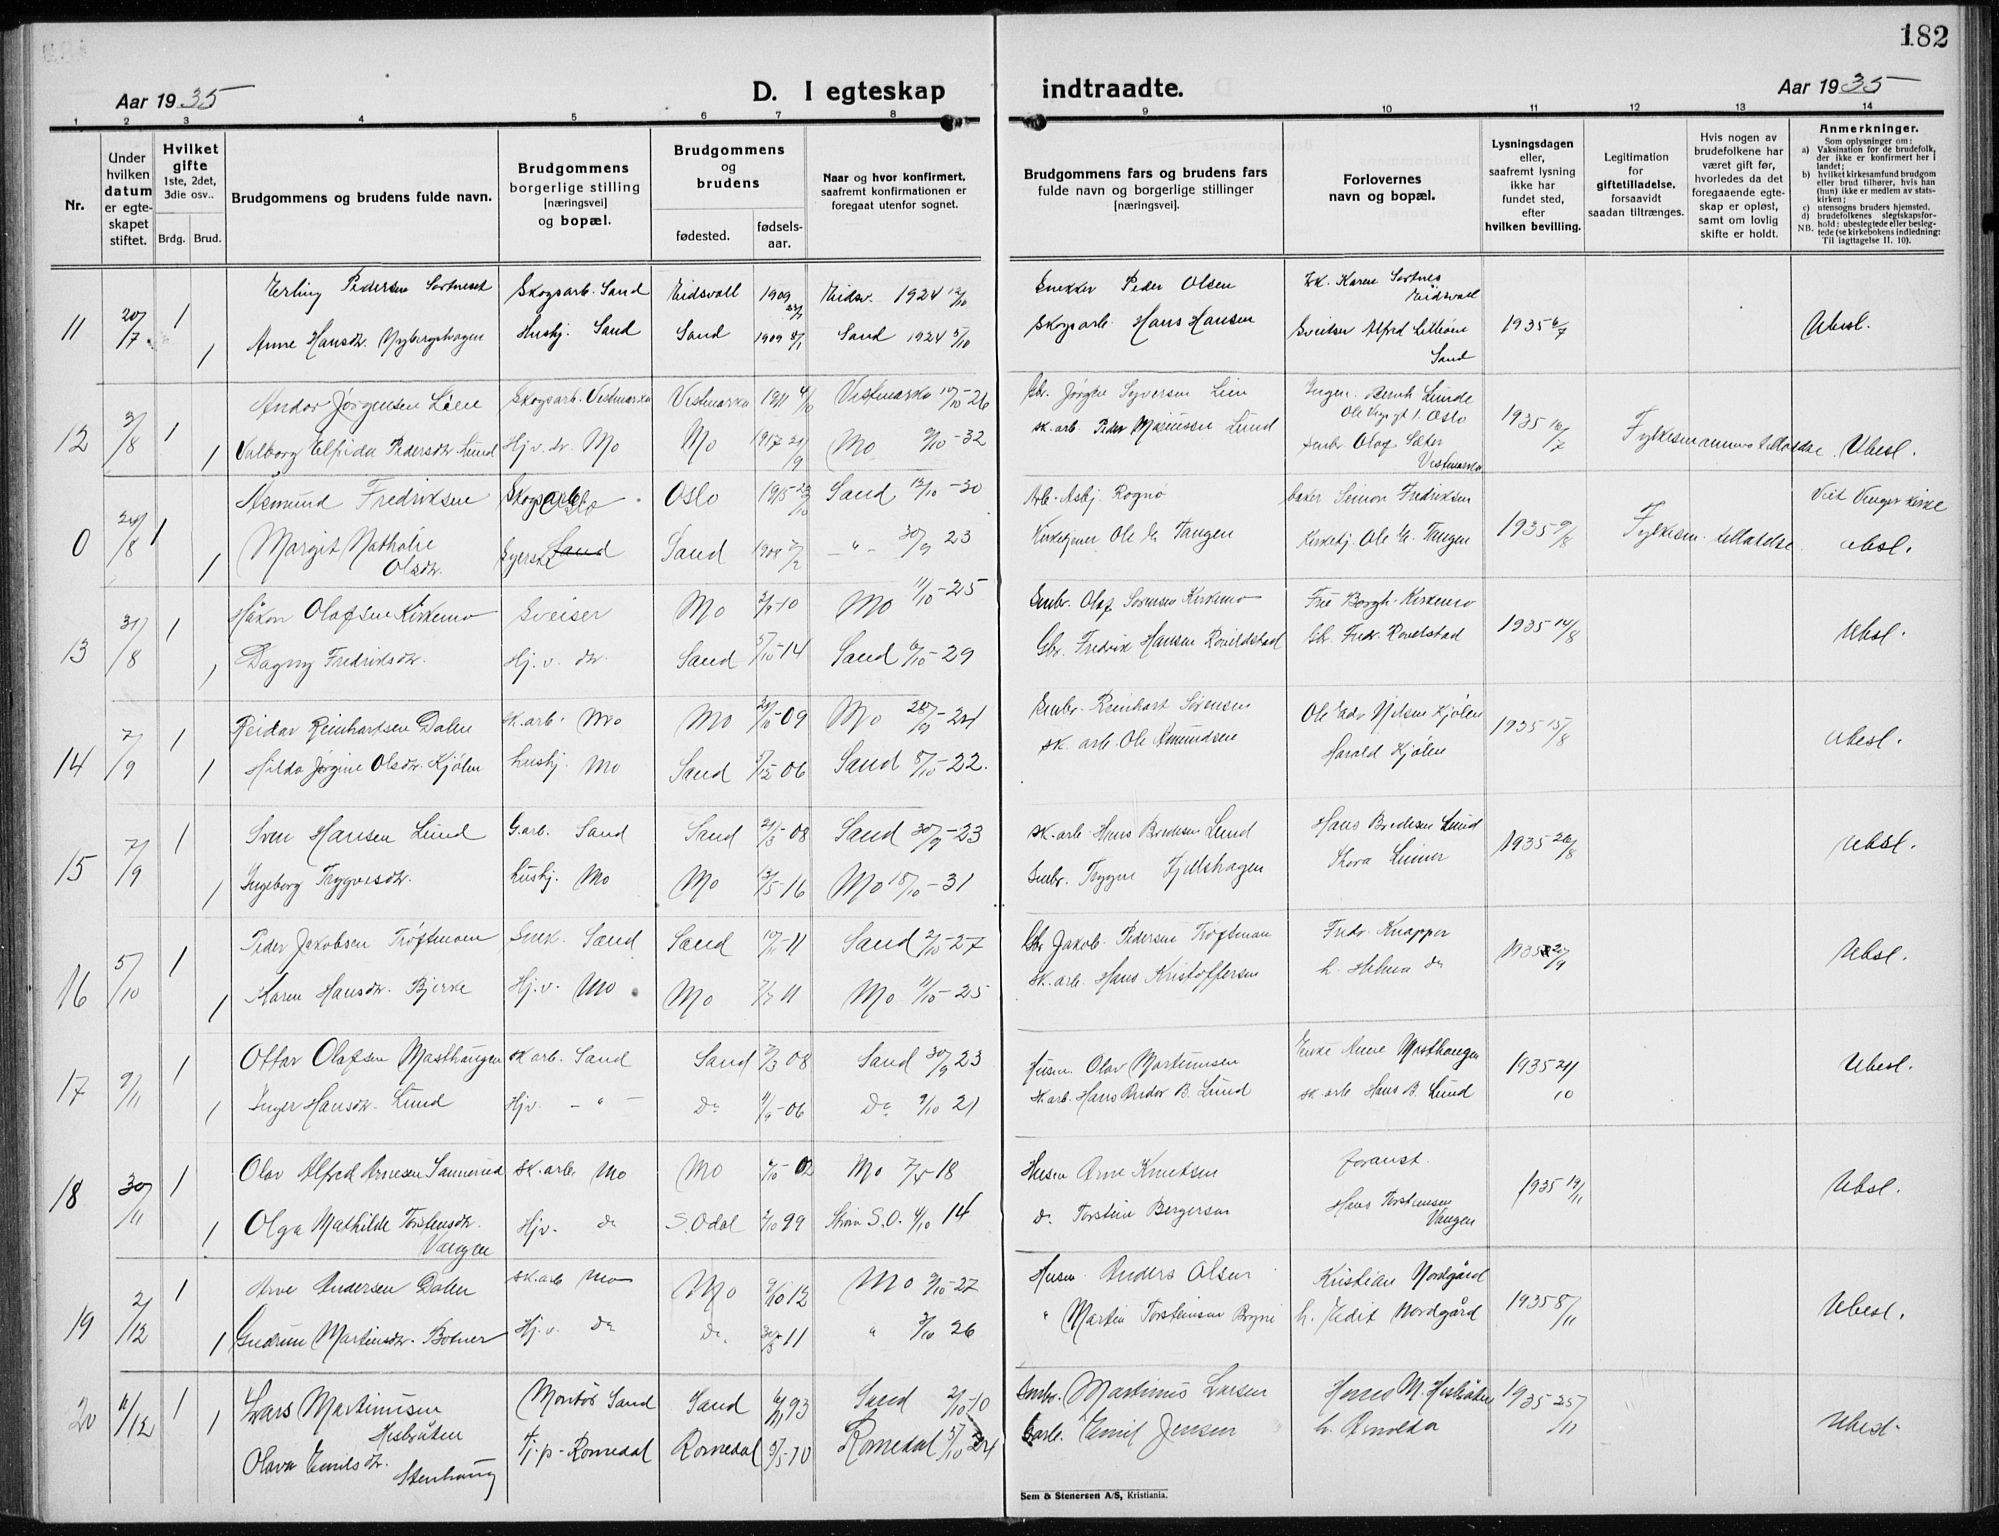 182
Aar 1935 D. I egteskap indtraadte. Aar 1935
1 2 3 4 5 6 7 8 9 10 11 12 13 14
Nr.
Under hvilken datum er egte-skapet stiftet.
Hvilket gifte 1ste, 2det, 3die osv..
Brdg. Brud.
Brudgommens og brudens fulde navn.
Brudgommens borgerlige stilling [næringsvei] og bopæl.
Brudgommens og brudens
fødested. fødsels-aar.
Naar og hvor konfirmert, saafremt konfirmationen er foregaat utenfor sognet.
Brudgommens fars og brudens fars fulde navn og borgerlige stillinger [næringsvei].
Forlovernes navn og bopæl.
Lysningsdagen eller, saafremt lysning ikke har fundet sted, efter hvilken bevilling.
Legitimation for giftetilladelse, forsaavidt saadan tiltrænges.
Hvis nogen av brudefolkene har været gift før, hvorledes da det foregaaende egte-skap er opløst, samt om lovlig skifte er holdt.
Anmerkninger.
Som oplysninger om:
a) Vaksination for de brudefolk, der ikke er konfirmert her i landet;
b) hvilket kirkesamfund brudgom eller brud tilhører, hvis han (hun) ikke er medlem av stats-kirken;
c) utensogns bruders hjemsted.
d) brudefolkenes slegtskapsfor-hold: ubeslegtede eller besleg-tede (se kirkebokens indledning:
NB. Til iagttagelse II. 10).
11 20/7 1 Erling Pedersen Sortneset Skogsarb. Sand Eidsvoll 1909 Eidsv. 1924 Snekker Peder Olsen Ek. Karen Sortnes Eidsvoll
1 Anne Hansdr. Nybergshagen Hushj. Sand Sand 1909 Sand 1924 Skogsarb. Hans Hansen Sveitser Alfred Sand 1935 6/7 Ubesl.
12 3/8 1 Andor Jørgensen Lien Skogsarb. Vestmarka Vestmarka 1911 4/10 Vestmarka 10/10-26 Gbr. Jørgen Syversen Lien Ingen. Bernh. Lunde Oslo
1 Valborg Elfrida Pedersdr. Lund Hj.v. dr. Mo Mo 1917 21/9 Mo 9/10-32 sk. arb. Peder Lund Smbr. Olag Sæter Vestmarka 1935 16/7 Fylkesmannens tillatelse. Ubesl.
0 24/8 1 Åsmund Fredriksen Skogsarb. Oslo Oslo 1915 Sand 12/10-30 Arb. Asbj. Rognø baker Simon Fredriksen Viet Vinger kirke
1 Margit Nathalie Olsdr. Sand Sand 1909 -"- 30/9 23 Kirketjener Ole E. Tangen Kirketj. Ole E. Tangen 1935 9/8 Fylkesm. tillatelse. Ubesl.
13 31/8 1 Håkon Olafsen Kirkemo Sveiser Mo 2/9-10 Mo 11/10-25 Smbr. Olaf Sørensen Kirkemo Fru Borgh. Kirkemo
1 Dagny Fredriksdr. Hj. v. dr. Sand 5/10-14 Sand 6/10-29 Gbr. Fredrik Hansen Roveldstad Gbr. Fredr. Rovelstad 1935 14/8 Ubesl.
14 7/9 1 Reidar Reinhartsen Dalen sk. arb. Mo Mo 09 Mo 28/9-24 Smbr. Reinhart Sørensen Ole Edv. Nilsen Kjølen
1 Hilda Jørgine Olsdr. Kjølen hushj. Mo Sand 06 Sand 8/10-22. sk. arb. Ole Amundsen Harald Kjølen 1935 15/8 Ubesl.
15 7/9 1 Sven Hansen Lund G.arb. Sand Sand 21/5-08 Sand 30/9-23 sk. arb. Hans Bredesen Lund Hans Bredesen Lund
1 Ingeborg Trygvesdr. hushj. Mo Mo 13/5-16 Mo 18/10-31 Smbr. Trygve Fjellshagen Thora 1935 26/8 Ubesl.
16 5/10 1 Peder Jakobsen Trøftmoen Snek. Sand Sand 10/1-11 Sand 2/10-27 Gbr. Jakob Pedersen Trøftmoen Fredr. Knapper
1 Karen Hansdr. Bjerke Hj.v. Mo Mo 7/7 11 Mo 11/10-25 sk. arb. Hans Kristoffersen h. Helma do 1935 20/9 Ubesl.
17 9/11 1 Ottar Olafsen Masthaugen sk arb. Sand Sand 7/3 08 Sand 30/9 23 Husm. Olav Martinusen Enke Anne Masthaugen
1 Inger Hansdr. Lund Hjv. -"- Do 06 Do 9/10 21 sk. arb. Hans Andor B. Lund sk arb Hans B. Lund 1935 21/10 Ubesl.
18 30/11 1 Olav Alfred Arnesen Sannerud sk. arb. Mo Mo 02 Mo 18 Husm Arne Knutsen foranst.
1 Olga Mathilde Torstensdr. Vangen Hjv. do S. Odal 99 Strøm S.O. 4/10 14 Do. Torstein Bergersen Hans Torstensen Vangen 1935 19/11 Ubesl.
19 2/12 1 Arve Andersen Dalen sk. arb Mo Mo 9/10 12 Mo 9/10-27 Husm. Anders Olsen Kristian Nordgård
1 Gudrun Martinsdr. Botner Hj.v. Do Do. 30/5-11 " 3/10 26 " Martin Torsteinsen h. Edit Nordgård 1935 8/11 Ubesl.
20 11/12 1 Lars Martinusen Hesbråten Montør Sand Sand 93 Sand 2/10-10 Smbr. Martinus Larsen Hans M. Hesbråten
1 Olava Emilsdr. Stenhaug Tj.p- Romedal Romedal 9/5-10 Romedal 5/10 24 G.arb. Emil Jensen h. Arnolda 1935 25/11 Ubesl.
Sem & Stenersen A/S, Kristiania.